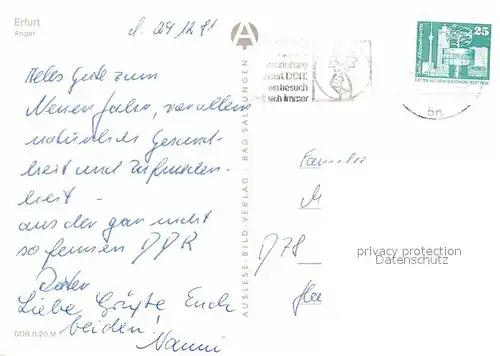 Erfurt
Anger
d. 29/12 81
Alles Gute zum
Neuen Jahr, vor allem
natürlich Gesund-
heit und Zufrieden-
heit -
aus der gar nicht
so fernen DDR
Liebe Grüße Euch
beiden!
Nanni
DDR 0,20 M
AUSLESE-BILD-VERLAG · BAD SALZUNGEN
DDR
ein besuch
sich immer
25
DEUTSCHE DEMOKRATISCHE REPUBLIK
Familie
M
D 78
privacy protection
Datenschutz